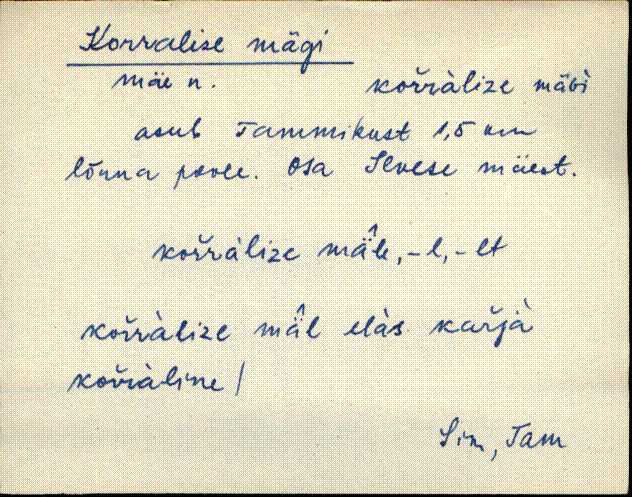 Korralise mägi
mäe n. kořràlize mäɢì
asub Tammikust 1,5 km
lõuna poole. Osa Ilvese mäest.
kořràlize mä̂le, -l, -lt
kořràlize mä̂l elàs kařjà
kořràline /
Sim, Tam